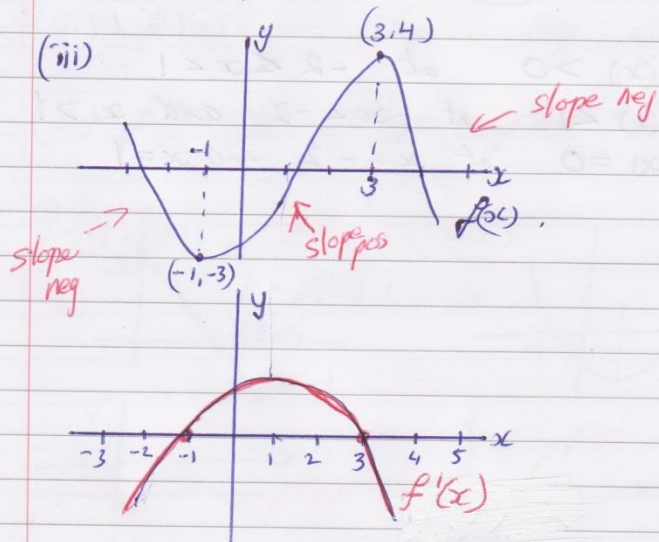 (iii)
y
(3,4)
slope neg
-1
3
x
f(x).
slope neg
slope pos
(-1,-3)
y
-3 -2 -1 1 2 3 4 5 x
f'(x)